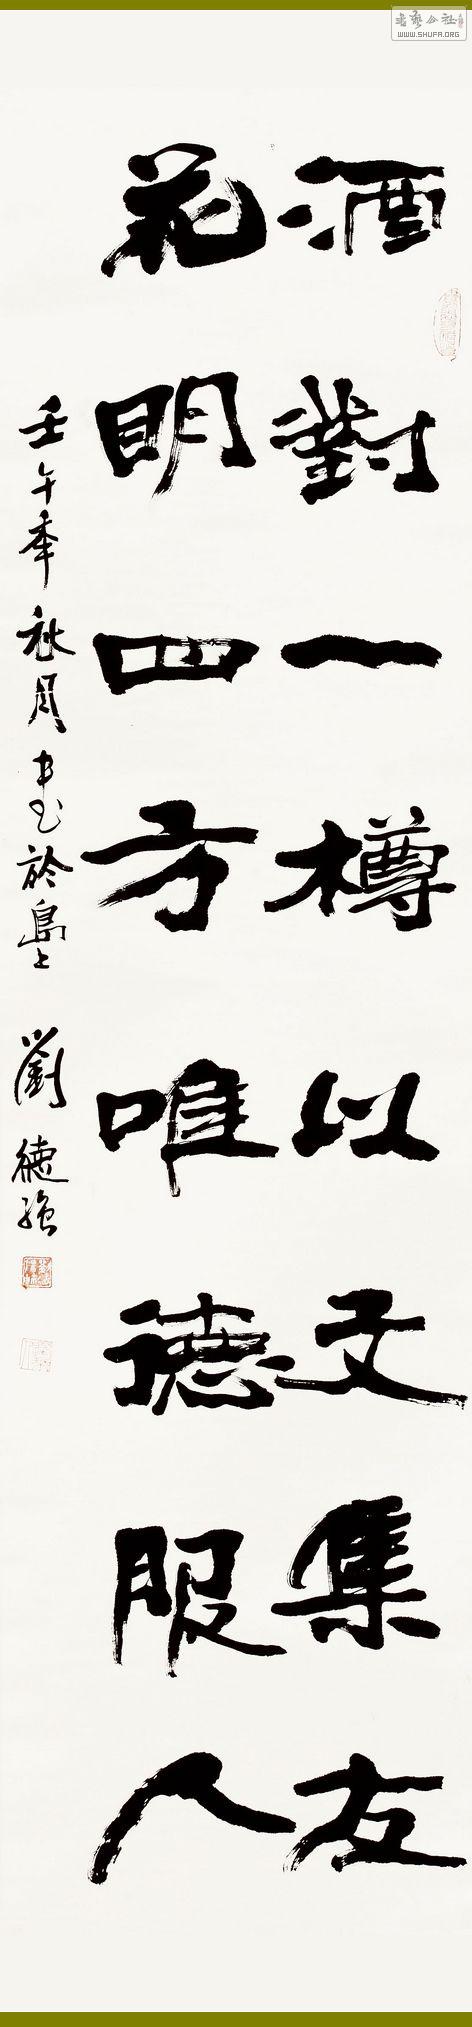 酒對一樽以文集友
花明四方唯德服人
壬午年秋月書於島上
劉德強
书艺公社
WWW.SHUFA.ORG